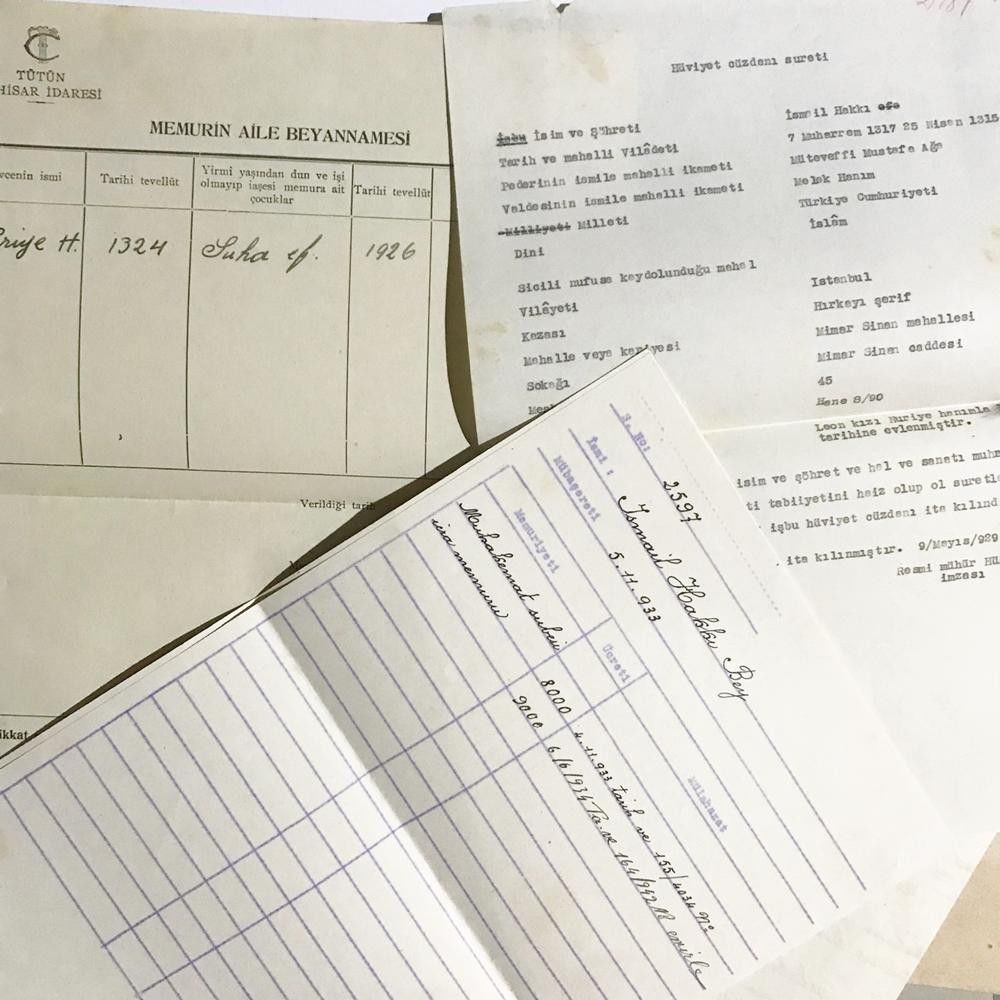 TÜTÜN
HİSAR İDARESİ
MEMURİN AİLE BEYANNAMESİ
vcenin ismi
Tarihi tevellüt
Yirmi yaşından dun ve işi
olmayıp iaşesi memura ait
çocuklar
Tarihi tevellüt
riye H.
1324
Suha ef.
1926
Verildiği tarih
ikkat
Hüviyet cüzdanı sureti
İsim ve Şöhreti
İsmail Hakkı efe
Tarih ve mahalli Vilâdeti
7 Muharrem 1317 25 Nisan 1315
Pederinin ismile mahalli ikameti
Müteveffi Mustafa Ağa
Valdesinin ismile mahalli ikameti
Melek Hanım
Milliyeti Milleti
Türkiye Cumhuriyeti
Dini
İslâm
Sicili nufusa kaydolunduğu mahal
Vilâyeti
Istanbul
Kazası
Hırkayı şerif
Mahalle veya kariyesi
Mimar Sinan mahallesi
Sokağı
Mimar Sinan caddesi
45
Hane 8/90
Leon kızı Nuriye hanımla
tarihine evlenmiştir.
isim ve şöhret ve hal ve sanatı muhr
ti tabiiyetini haiz olup ol suretle
işbu hüviyet cüzdanı ita kılınd
ita kılınmıştır. 9/Mayıs/929
Resmi mühür Hü
imzası
S. No: 2597
İsmi : İsmail Hakkı Bey
Mübaşereti 5.11.933
Memuriyeti
Ücreti
Mülahazat
Muhakemat subesi 8000 4.11.933 tarih ve 155/4034 No
icra memuru 9000 6/6/934 Ta. ve 164/942 N emirle